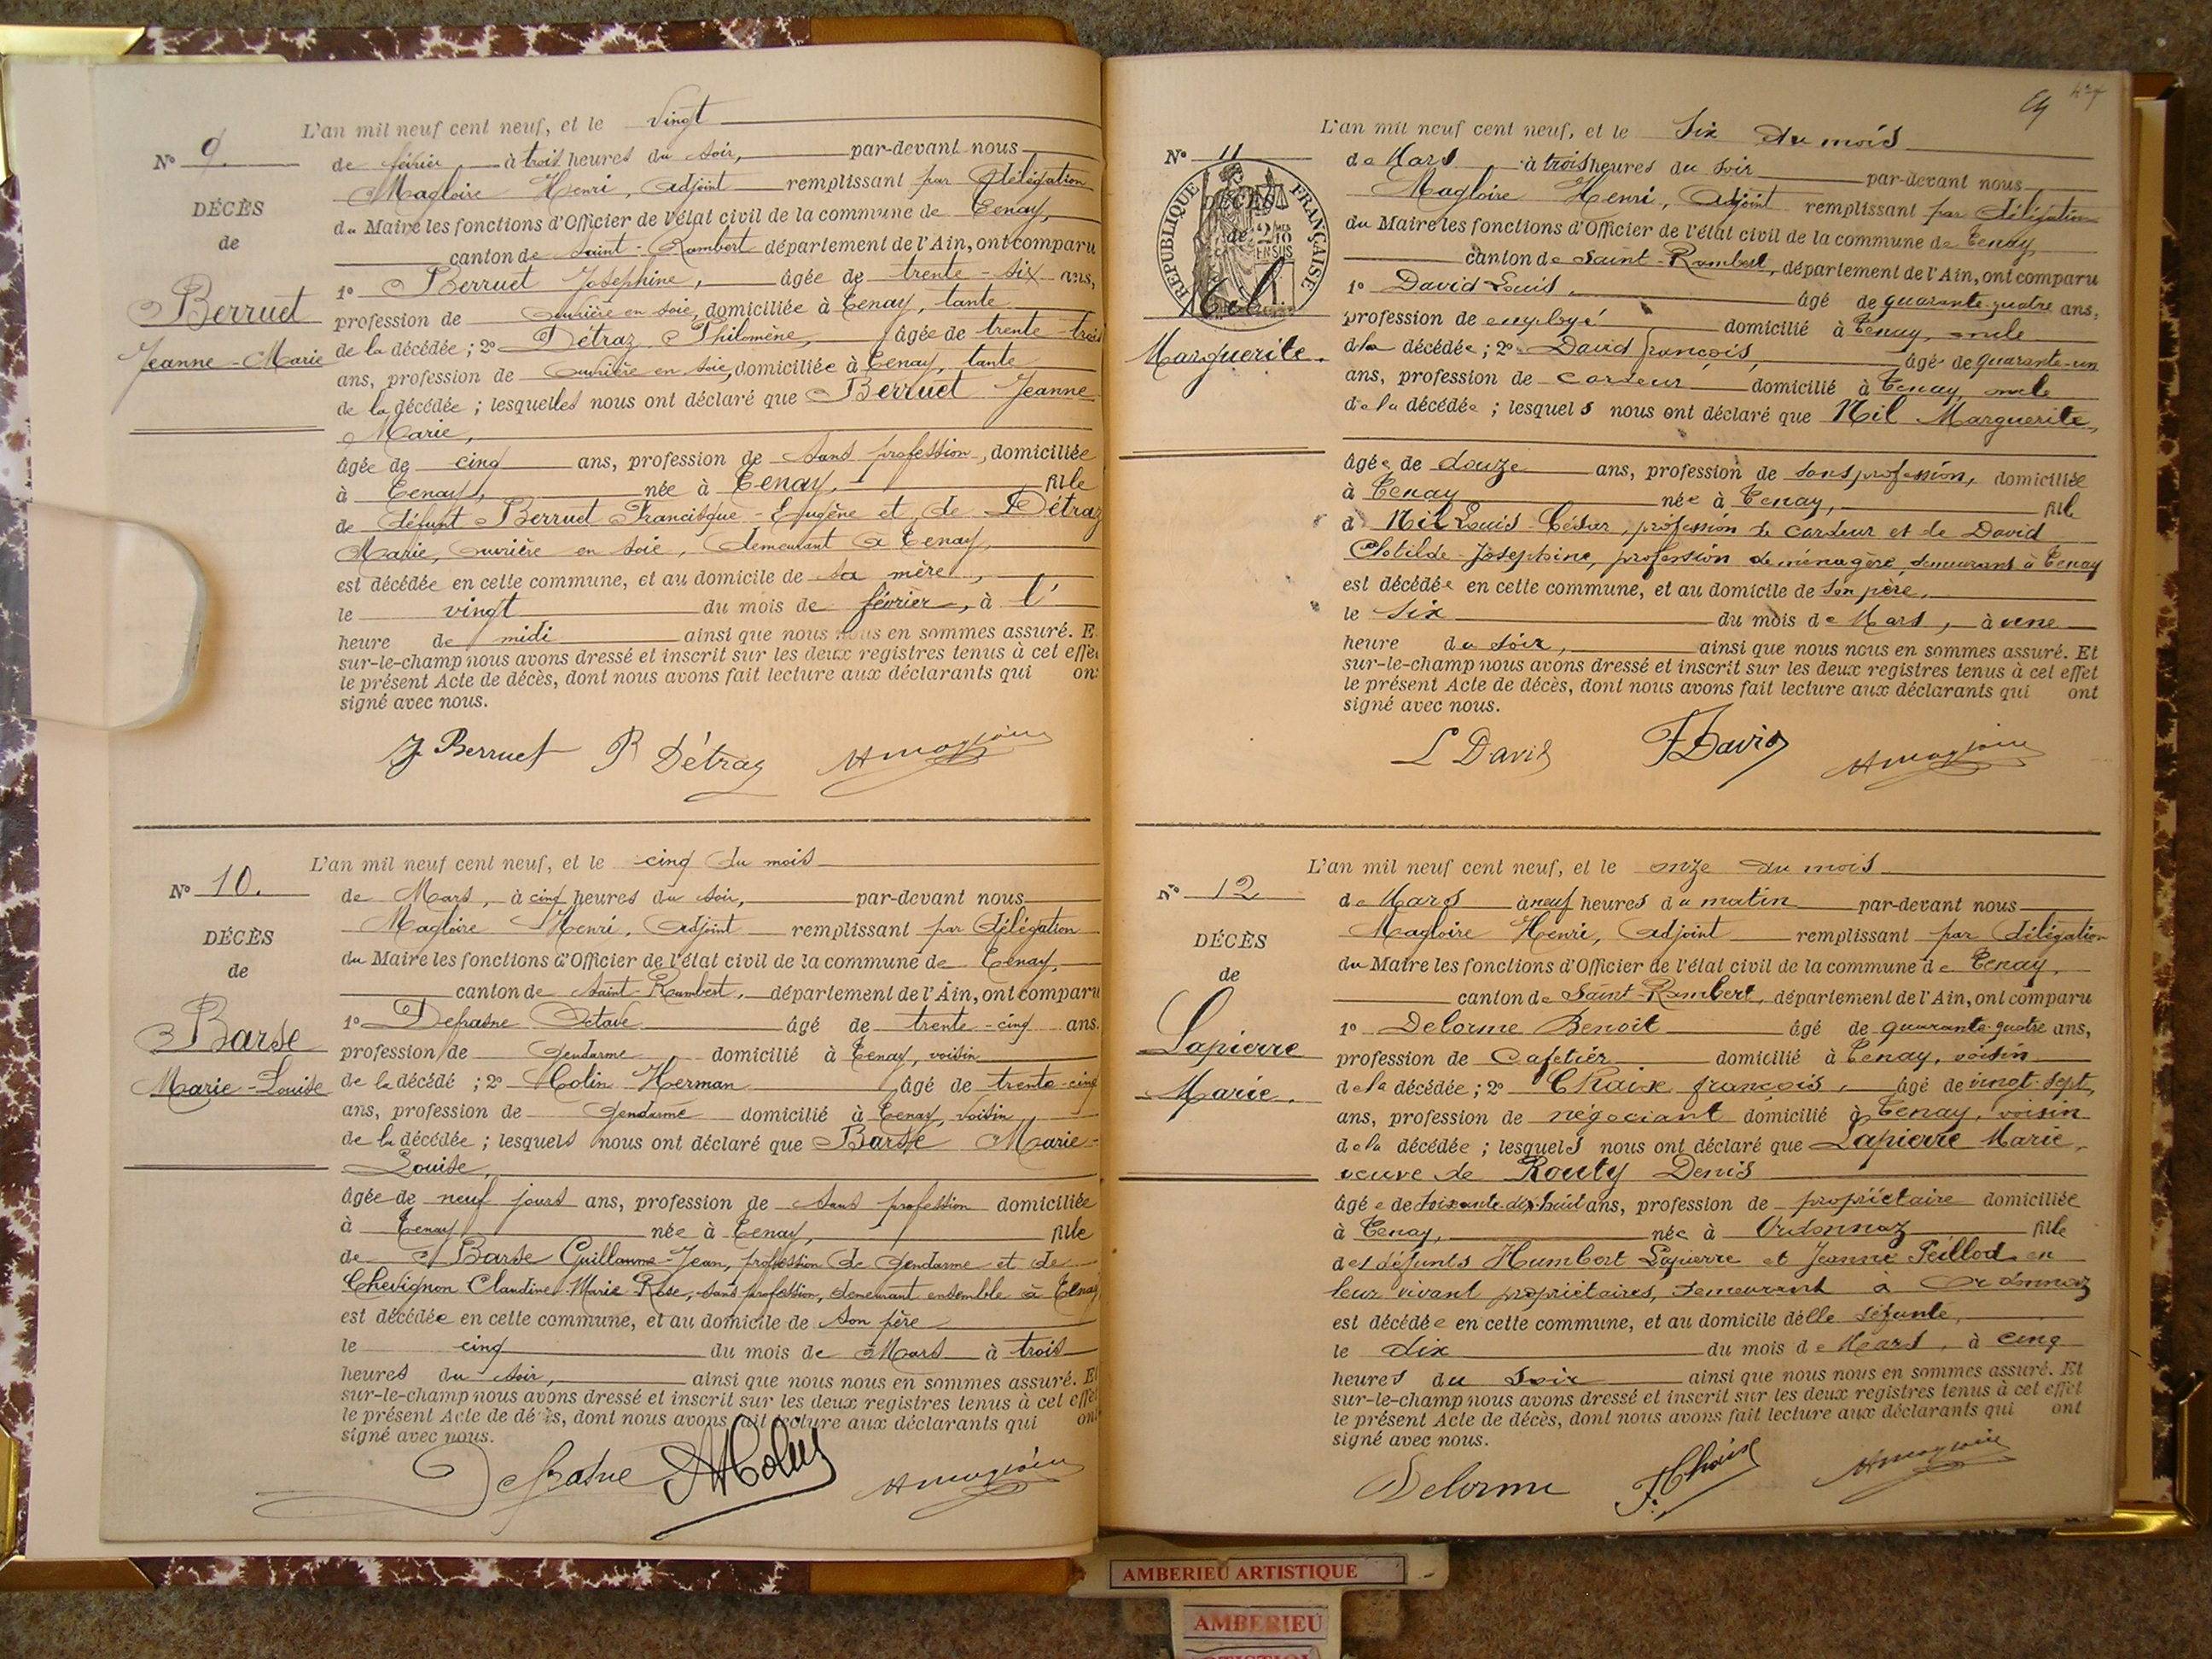 L'an mil neuf cent neuf, et le vingt
N° 9.
de février, à trois heures du soir, par-devant nous
Magloire Henri, Adjoint remplissant par délégation
DÉCÈS
du Maire les fonctions d'Officier de l'état civil de la commune de Tenay,
de
canton de Saint-Rambert département de l'Ain, ont comparu
Berruet
Jeanne-Marie
1° Berruet Josephine, âgée de trente-six ans,
profession de ouvrière en soie, domiciliée à Tenay, tante
de la décédée; 2° Détraz Philomène, âgée de trente-trois
ans, profession de ouvrière en soie, domiciliée à Tenay, tante
de la décédée; lesquelles nous ont déclaré que Berruet Jeanne
Marie,
âgée de cinq ans, profession de sans profession, domiciliée
à Tenay, née à Tenay, fille
de défunt Berruet Francisque-Eugène et de Détraz
Marie, ouvrière en soie, demeurant à Tenay,
est décédée en cette commune, et au domicile de sa mère,
le vingt du mois de février, à l'
heure de midi ainsi que nous nous en sommes assuré. Et
sur-le-champ nous avons dressé et inscrit sur les deux registres tenus à cet effet
le présent Acte de décès, dont nous avons fait lecture aux déclarants qui ont
signé avec nous.
J Berruet P Détraz H Magloire
L'an mil neuf cent neuf, et le cinq du mois
N° 10.
de Mars, à cinq heures du soir, par-devant nous
Magloire Henri, Adjoint remplissant par délégation
DÉCÈS
du Maire les fonctions d'Officier de l'état civil de la commune de Tenay,
de
canton de Saint-Rambert, département de l'Ain, ont comparu
Barse
Marie-Louise
1° Defrasne Octave âgé de trente-cinq ans.
profession de Gendarme domicilié à Tenay, voisin
de la décédé; 2° Colin Herman âgé de trente-cinq
ans, profession de Gendarme domicilié à Tenay, voisin
de la décédée; lesquels nous ont déclaré que Barse Marie-
Louise,
âgée de neuf jours ans, profession de sans profession domiciliée
à Tenay née à Tenay, fille
de Barse Guillaume-Jean, profession de Gendarme et de
Chevignon Claudine-Marie-Rose, sans profession, demeurant ensemble à Tenay
est décédée en cette commune, et au domicile de son père
le cinq du mois de Mars à trois
heures du soir, ainsi que nous nous en sommes assuré. Et
sur-le-champ nous avons dressé et inscrit sur les deux registres tenus à cet effet
le présent Acte de décès, dont nous avons fait lecture aux déclarants qui ont
signé avec nous.
Defrasne H Colin H Magloire
L'an mil neuf cent neuf, et le six du mois
N° 11
de Mars à trois heures du soir par-devant nous
Magloire Henri, Adjoint remplissant par délégation
RÉPUBLIQUE FRANÇAISE
DÉCÈS
de
du Maire les fonctions d'Officier de l'état civil de la commune de Tenay,
canton de Saint-Rambert, département de l'Ain, ont comparu
Marguerite.
1° David Louis, âgé de quarante-quatre ans,
profession de employé domicilié à Tenay, oncle
de la décédée; 2° David François, âgé de quarante-un
ans, profession de cardeur domicilié à Tenay, oncle
de la décédée; lesquels nous ont déclaré que Nil Marguerite,
âgée de douze ans, profession de sans profession, domiciliée
à Tenay née à Tenay, fille
de Nil Louis-César, profession de cardeur et de David
Clotilde-Joséphine, profession de ménagère, demeurans à Tenay
est décédée en cette commune, et au domicile de son père,
le six du mois de Mars, à une
heure du soir, ainsi que nous nous en sommes assuré. Et
sur-le-champ nous avons dressé et inscrit sur les deux registres tenus à cet effet
le présent Acte de décès, dont nous avons fait lecture aux déclarants qui ont
signé avec nous.
L David F David H Magloire
L'an mil neuf cent neuf, et le onze du mois
N° 12
de Mars à neuf heures du matin par-devant nous
Magloire Henri, Adjoint remplissant par délégation
DÉCÈS
du Maire les fonctions d'Officier de l'état civil de la commune de Tenay,
de
canton de Saint-Rambert, département de l'Ain, ont comparu
Lapierre
Marie.
1° Delorme Benoît âgé de quarante-quatre ans,
profession de Cafetier domicilié à Tenay, voisin
de la décédée; 2° Chaix françois, âgé de vingt-sept,
ans, profession de négociant domicilié à Tenay, voisin
de la décédée; lesquels nous ont déclaré que Lapierre Marie,
veuve de Routy Denis
âgée de soixante-dix-huit ans, profession de propriétaire domiciliée
à Tenay, née à Ordonnaz fille
des défunts Humbert Lapierre et Jeanne Peillod en
leur vivant propriétaires, demeurant à Ordonnaz
est décédée en cette commune, et au domicile d'elle défunte,
le dix du mois de Mars, à cinq
heures du soir ainsi que nous nous en sommes assuré. Et
sur-le-champ nous avons dressé et inscrit sur les deux registres tenus à cet effet
le présent Acte de décès, dont nous avons fait lecture aux déclarants qui ont
signé avec nous.
Delorme F. Chaix H Magloire
AMBERIEU ARTISTIQUE
AMBERIEU